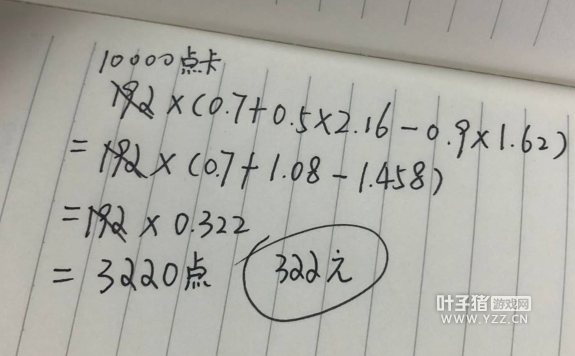 10000点卡
192×(0.7+0.5×2.16-0.9×1.62)
=192×(0.7+1.08-1.458)
=192×0.322
=3220点 322元
叶子猪游戏网
WWW.YZZ.CN